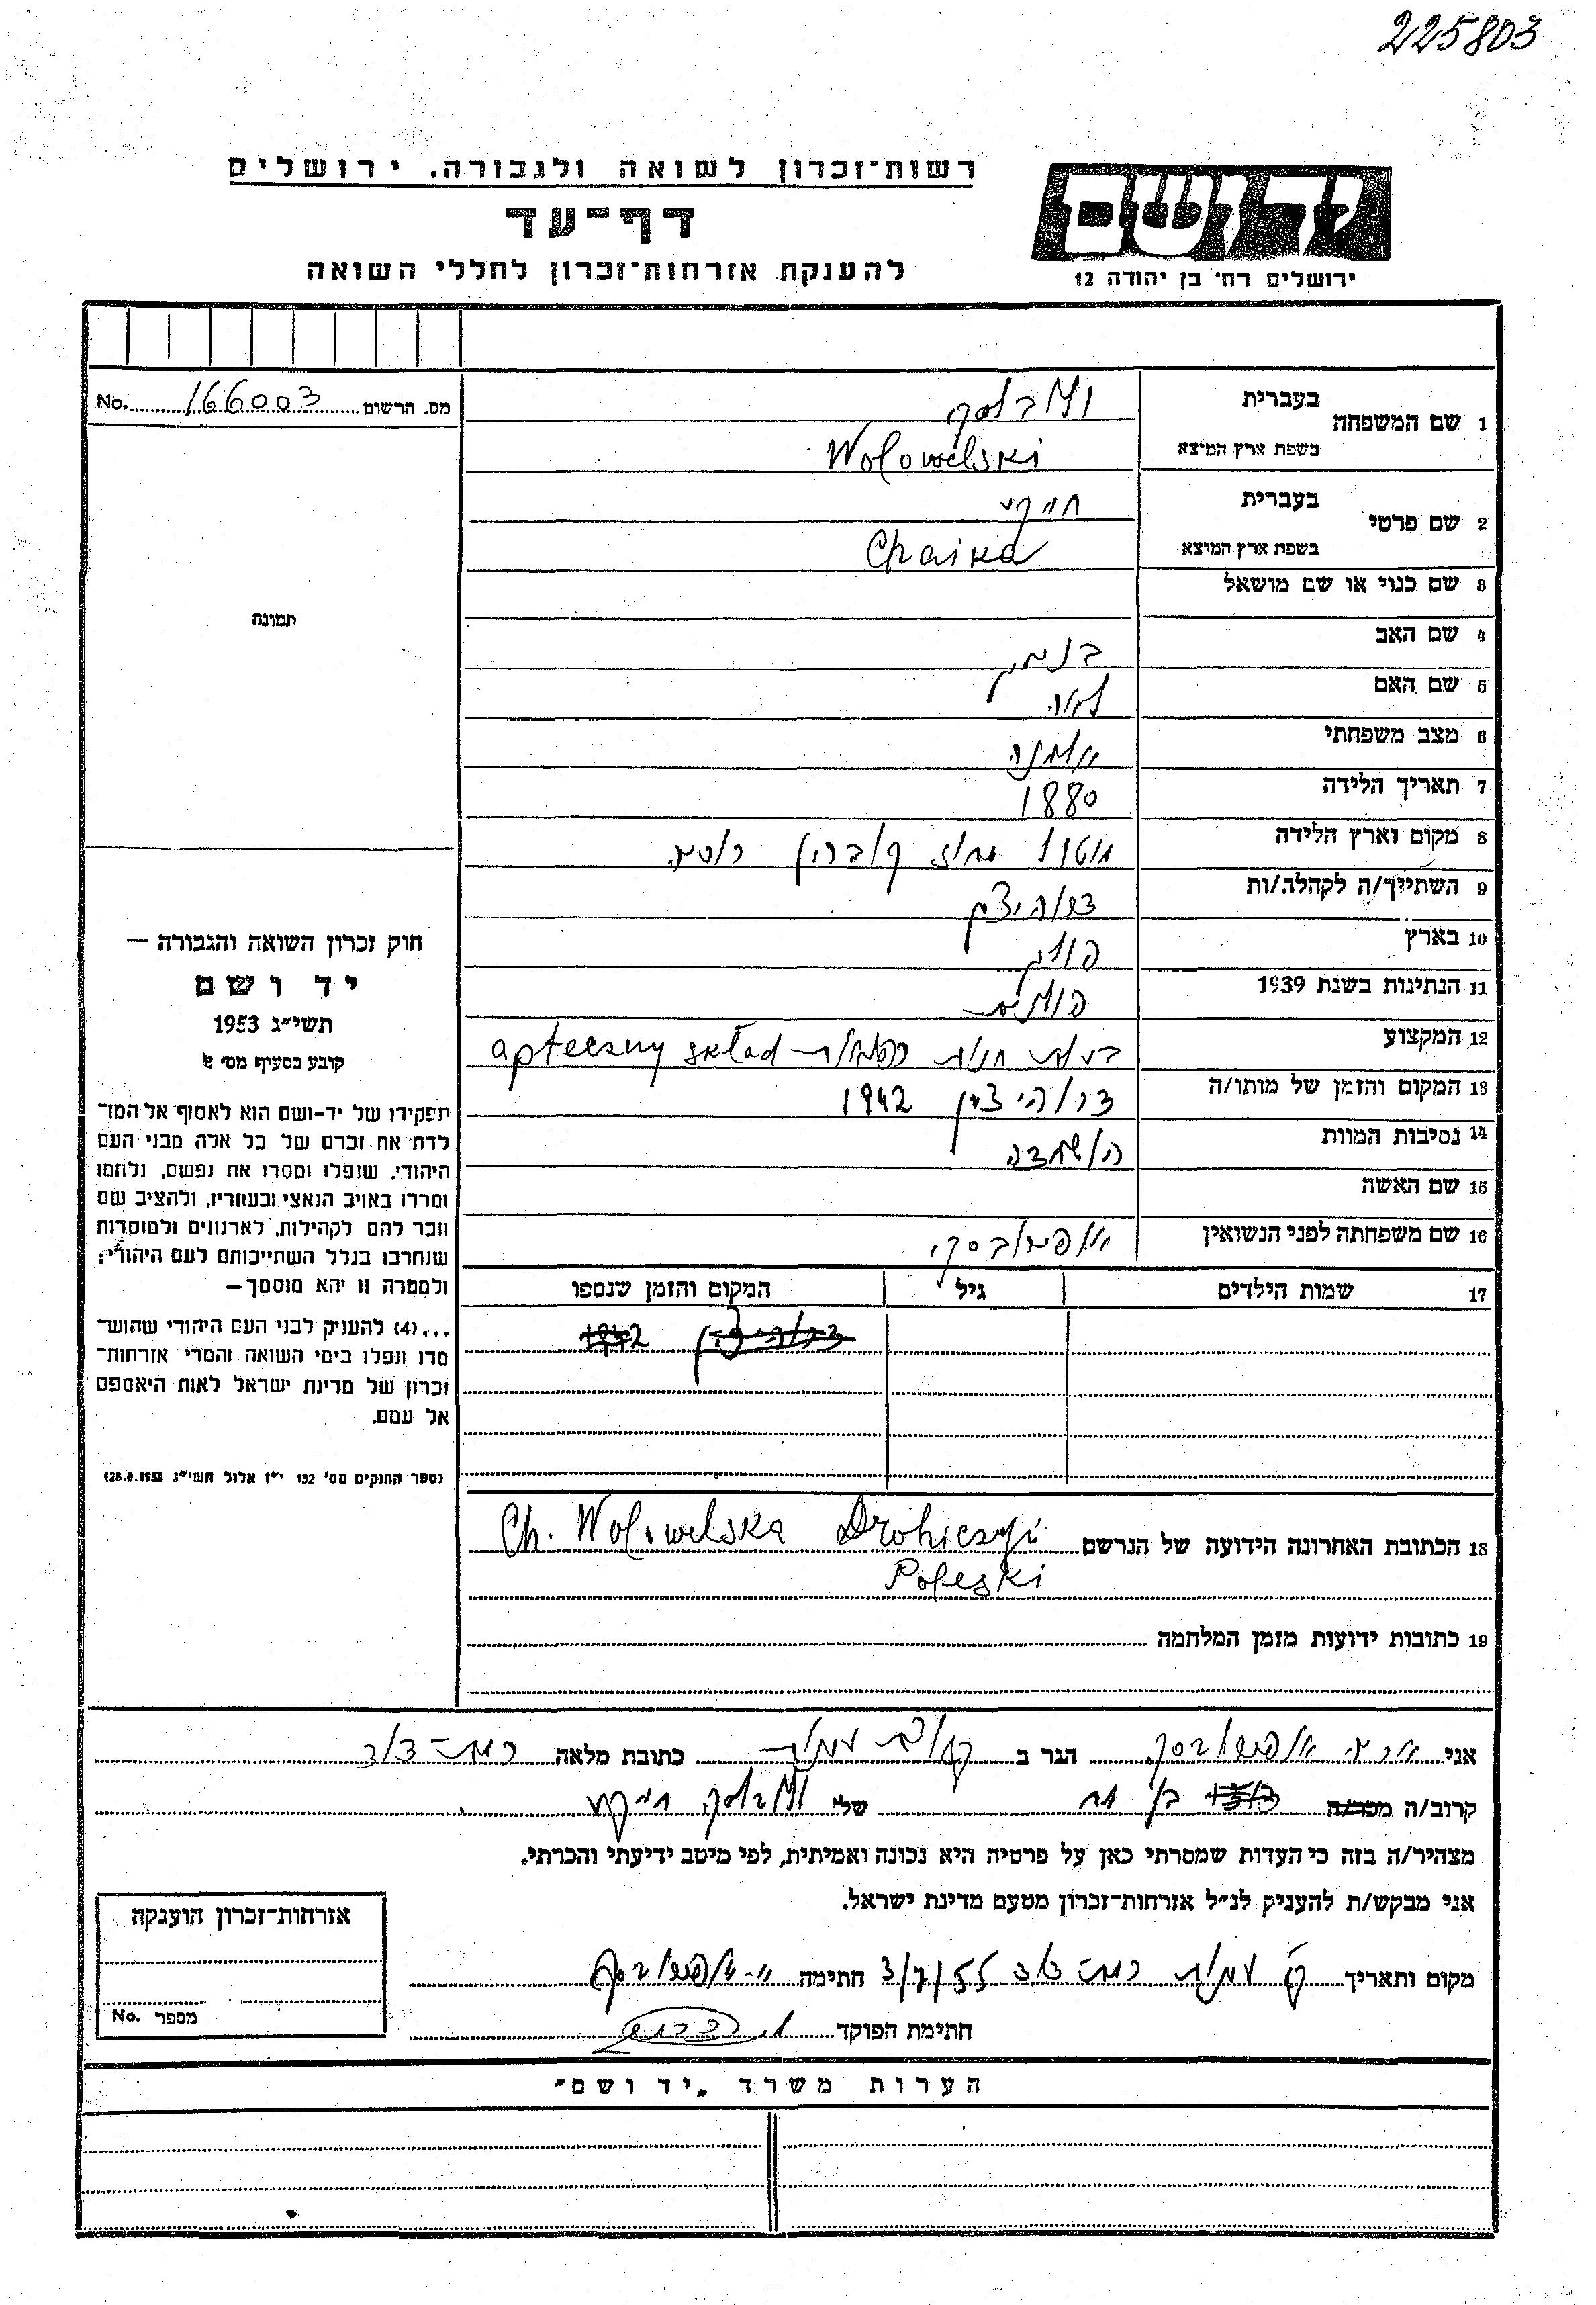 225803
רשות־זכרון לשואה ולגבורה. ירושלים
דף־עד
להענקת אזרחות־זכרון לחללי השואה
יד ושם
ירושלים רח׳ בן יהודה 12
מס. הרשום 166003 No.
1 שם המשפחה
בעברית
בשפת ארץ המוצא Wolowelski
2 שם פרטי
בעברית
בשפת ארץ המוצא Chaika
3 שם כנוי או שם מושאל
4 שם האב
5 שם האם לאה
6 מצב משפחתי אלמנה
7 תאריך הלידה 1880
8 מקום וארץ הלידה מחוז קוברין רוסיה
9 השתייך/ה לקהלה/ות דרוהיצין
10 בארץ פולין
11 הנתינות בשנת 1939 פולנית
12 המקצוע בעלת חנות apteczny skład
13 המקום והזמן של מותו/ה דרוהיצין 1942
14 נסיבות המוות הושמדה
15 שם האשה
16 שם משפחתה לפני הנשואין
17 שמות הילדים גיל המקום והזמן שנספו
דרוהיצין 1942
18 הכתובת האחרונה הידועה של הנרשם Ch. Wolowelska Drohiczyń
Poleski
19 כתובות ידועות מזמן המלחמה
תמונה
חוק זכרון השואה והגבורה —
יד ושם
תשי״ג 1953
קובע בסעיף מס׳ 2
תפקידו של יד-ושם הוא לאסוף אל המו־
לדת את זכרם של כל אלה מבני העם
היהודי. שנפלו ומסרו את נפשם, נלחמו
ומרדו באויב הנאצי ובעוזריו, ולהציב שם
וזכר להם לקהילות, לארגונים ולמוסדות
שנחרבו בגלל השתייכותם לעם היהודי;
ולמטרה זו יהא מוסמך—
...(4) להעניק לבני העם היהודי שהוש־
מדו ונפלו בימי השואה והמרי אזרחות־
זכרון של מדינת ישראל לאות היאספם
אל עמם.
(ספר החוקים מס׳ 132 י״ז אלול תשי״ג 28.8.1953)
אני הגר ב כתובת מלאה
קרוב/ה מכר/ה בן אח של חייקה
מצהיר/ה בזה כי העדות שמסרתי כאן על פרטיה היא נכונה ואמיתית, לפי מיטב ידיעתי והכרתי.
אני מבקש/ת להעניק לנ״ל אזרחות־זכרון מטעם מדינת ישראל.
מקום ותאריך 3/7/55 חתימה
חתימת הפוקד
אזרחות־זכרון הוענקה
מספר No.
הערות משרד „יד ושם״